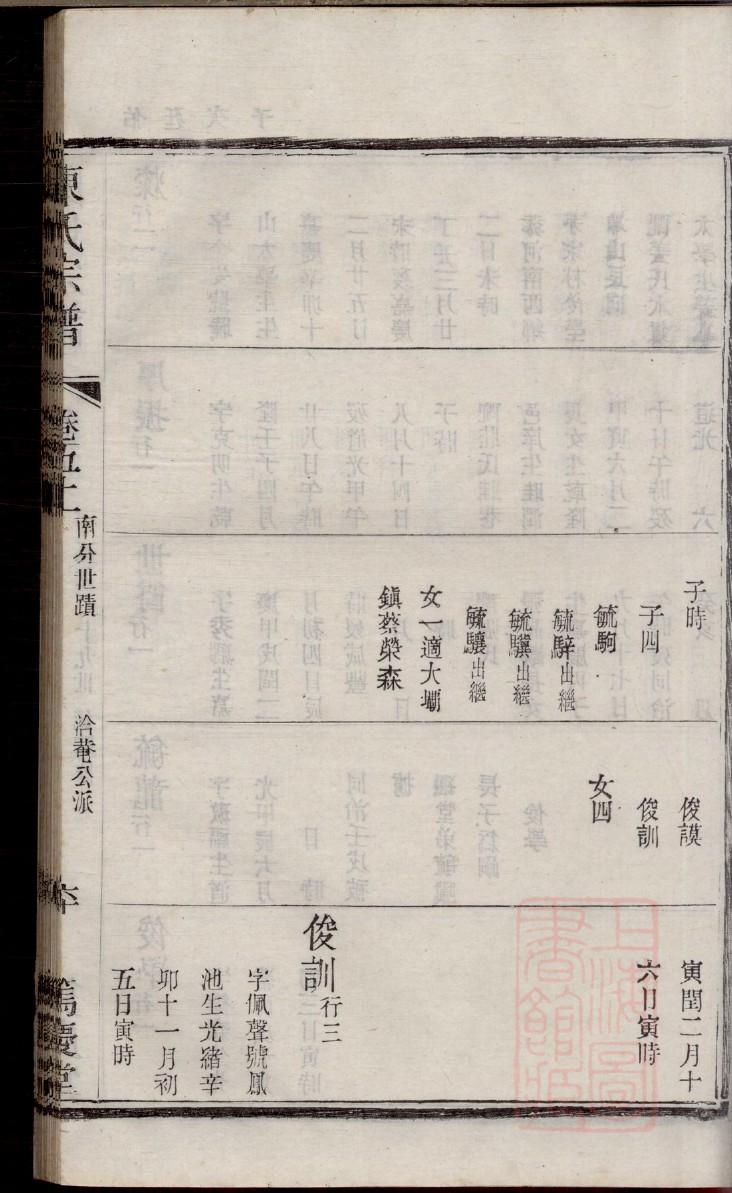 子時
子四
毓駒
毓騂出繼
毓驥出繼
毓驤出繼
女一適大壩
鎮蔡榮森
俊謨
俊訓
女四
寅閏二月十
六日寅時
俊訓行三
字佩聲號鳳
池生光緒辛
卯十一月初
五日寅時
陳氏宗譜
卷五上
南分世蹟
洽菴公派
篤慶堂
上海圖
書館藏